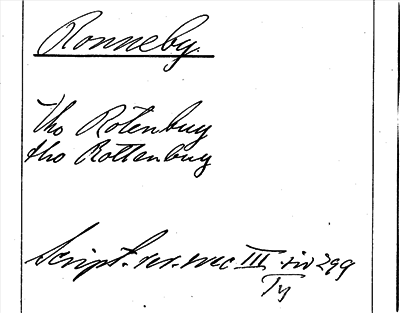 Ronneby.
tho Rotenbuy
tho Rottenbuy
Script. rer. svec III. sid 299
Ty